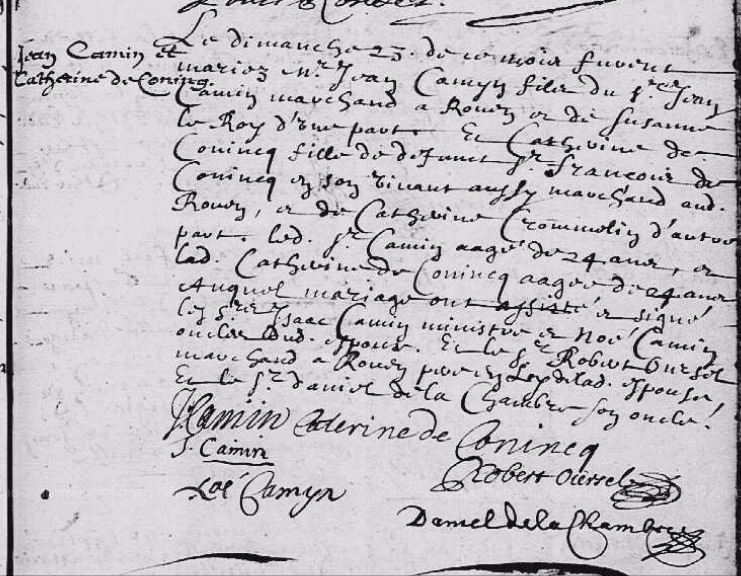 Jean Camin et
Catherine de Conincq.
Le dimanche 23. de ce mois furent
mariez Mr. Jean Camyn filz du Sr. Jean
Camin marchand a Rouen et de Susanne
le Roy d'une part. Et Catherine de
Conincq fille de defunct Sr. francois de
Conincq en son vivant aussy marchand aud.
Rouen, et de Catherine Crommelin d'autre
part. led. Sr. Camin aagé de 24 ans, et
lad. Catherine de Conincq aagee de 24 ans
Auquel mariage ont assisté et signé
les Srs Isaac Camin ministre et Noé Camin
oncles dud. espoux. Et le Sr Robert Oursel
marchand a Rouen de lad. espouse
Et le Sr. daniel de la Chambre son oncle.
JCamin Caterine de Conincq
J. Camin
Robert Oursel
Noé Camyn
Daniel de la Chambre